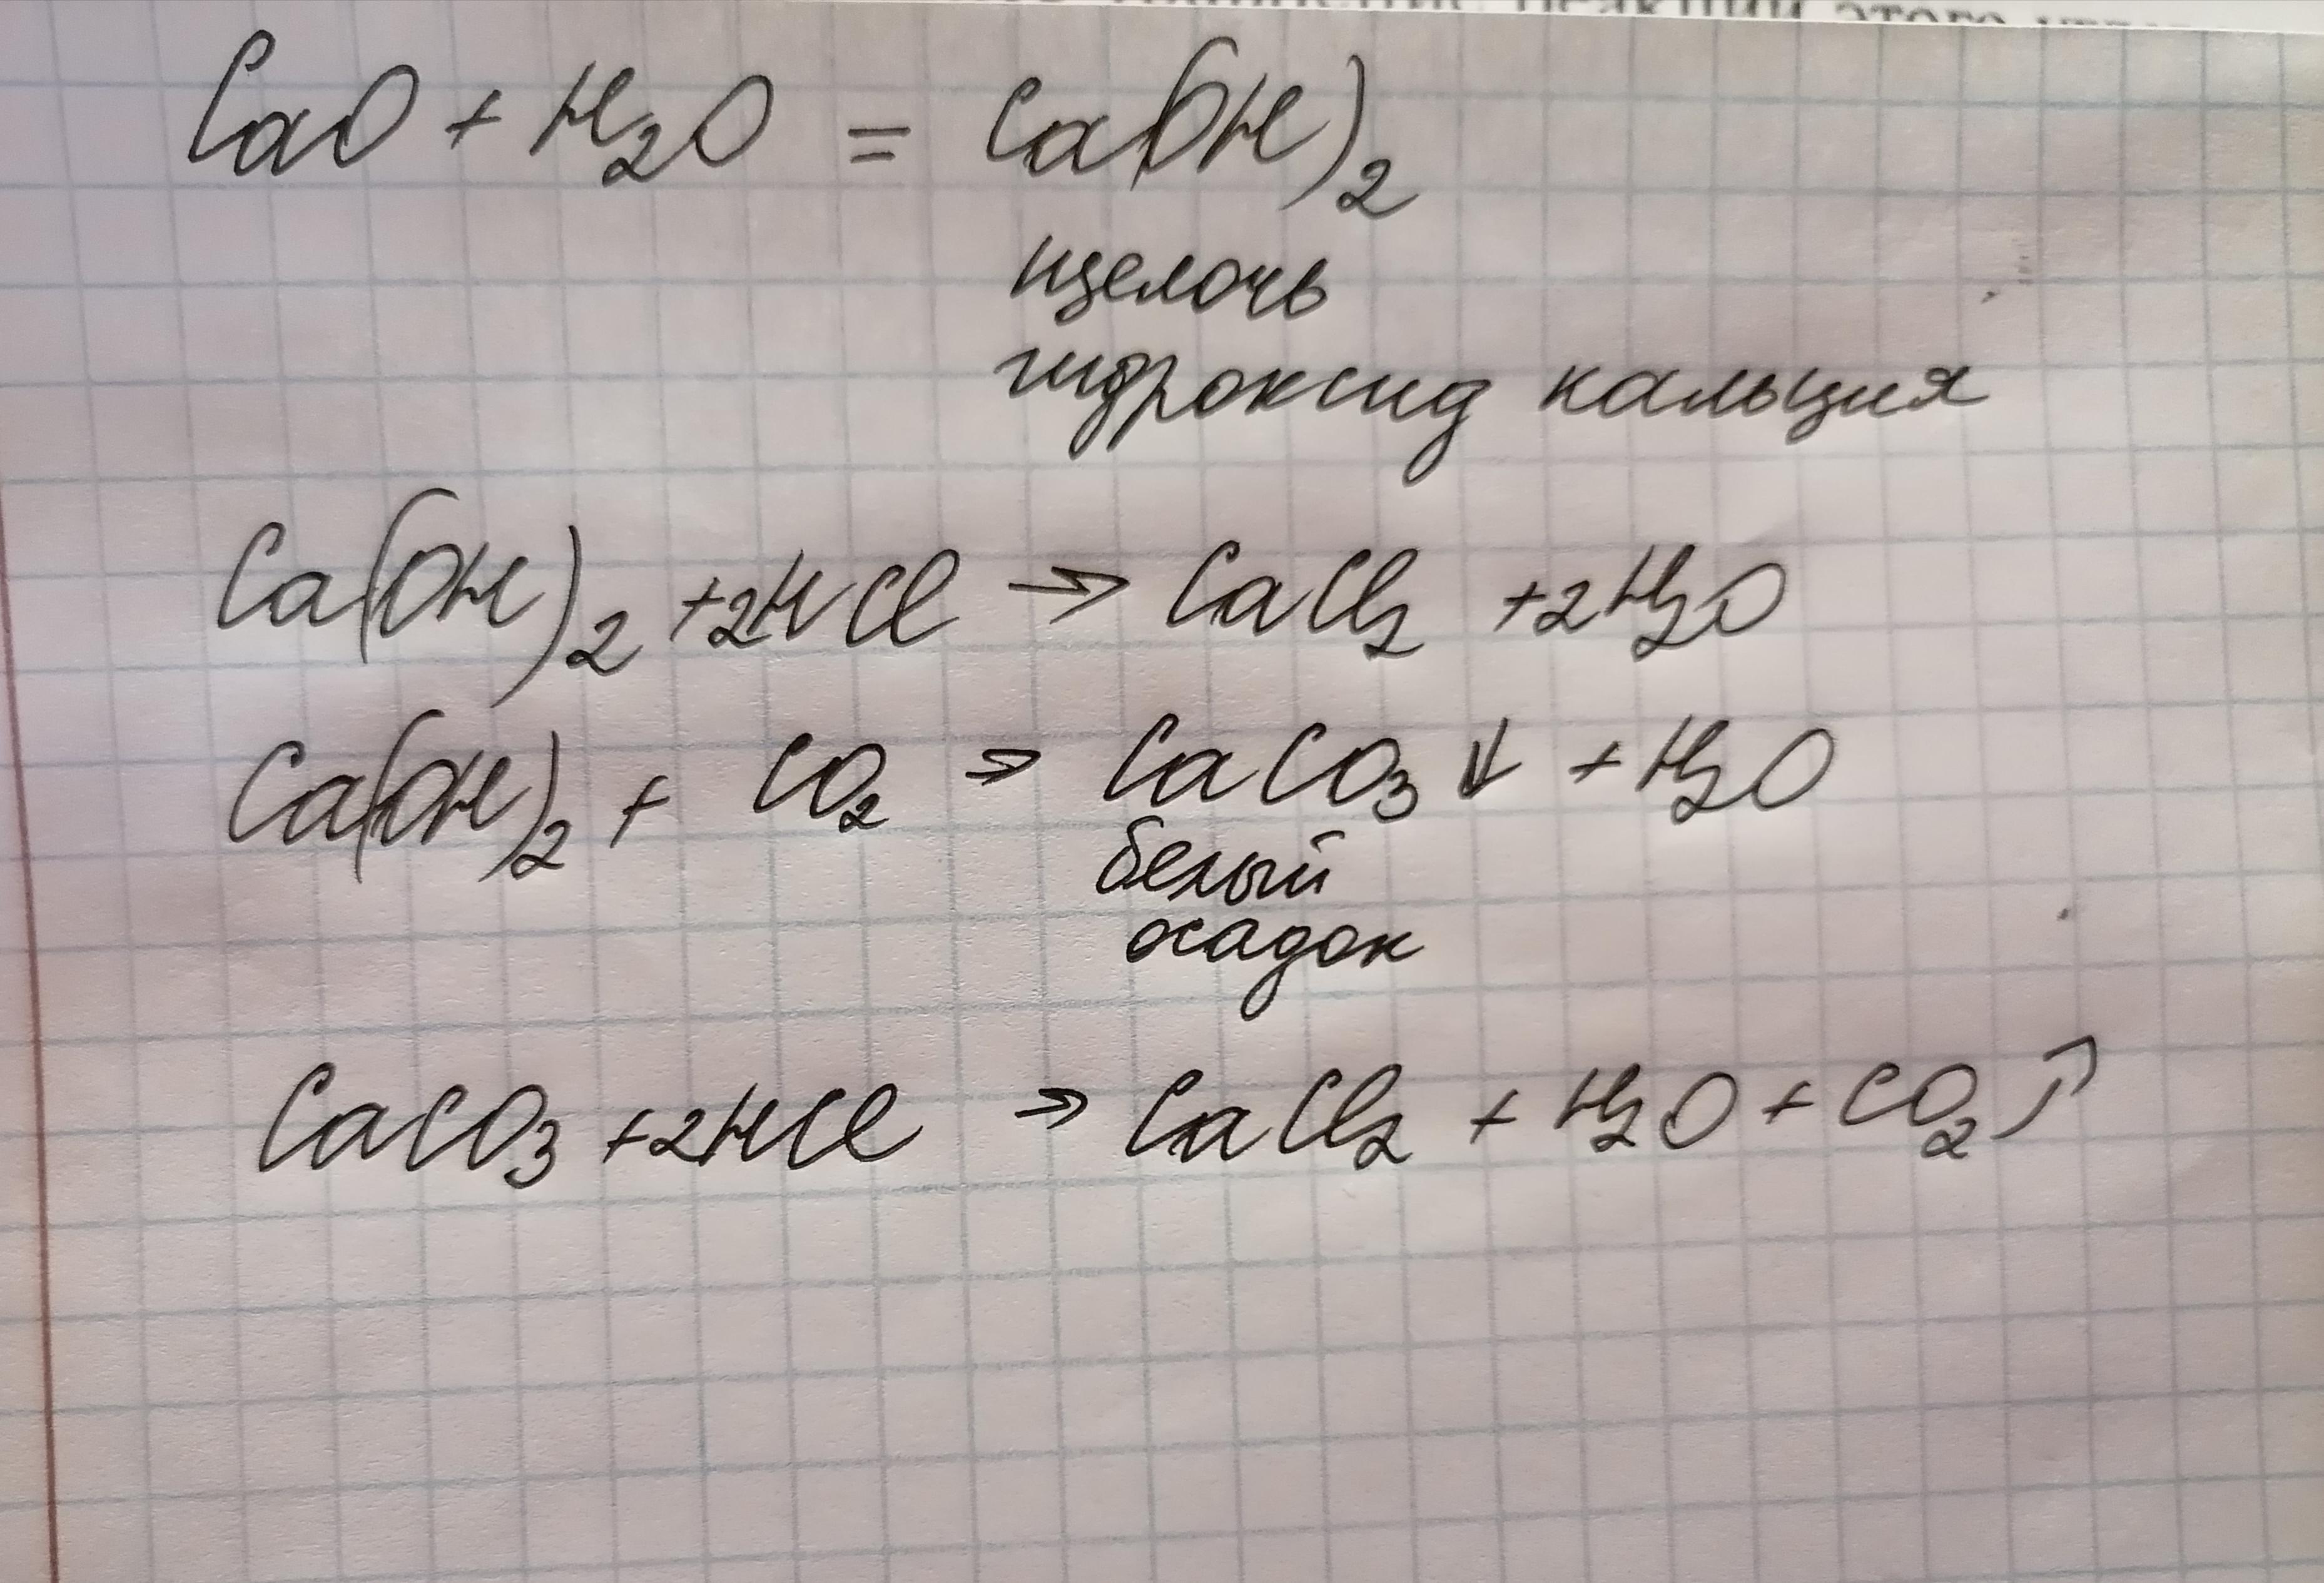 реакции этого
CaO + H₂O = Ca(OH)₂
щелочь
гидроксид кальция
Ca(OH)₂ +2HCl → CaCl₂ +2H₂O
Ca(OH)₂ + CO₂ → CaCO₃↓ + H₂O
белый
осадок
CaCO₃ +2HCl → CaCl₂ + H₂O + CO₂↑